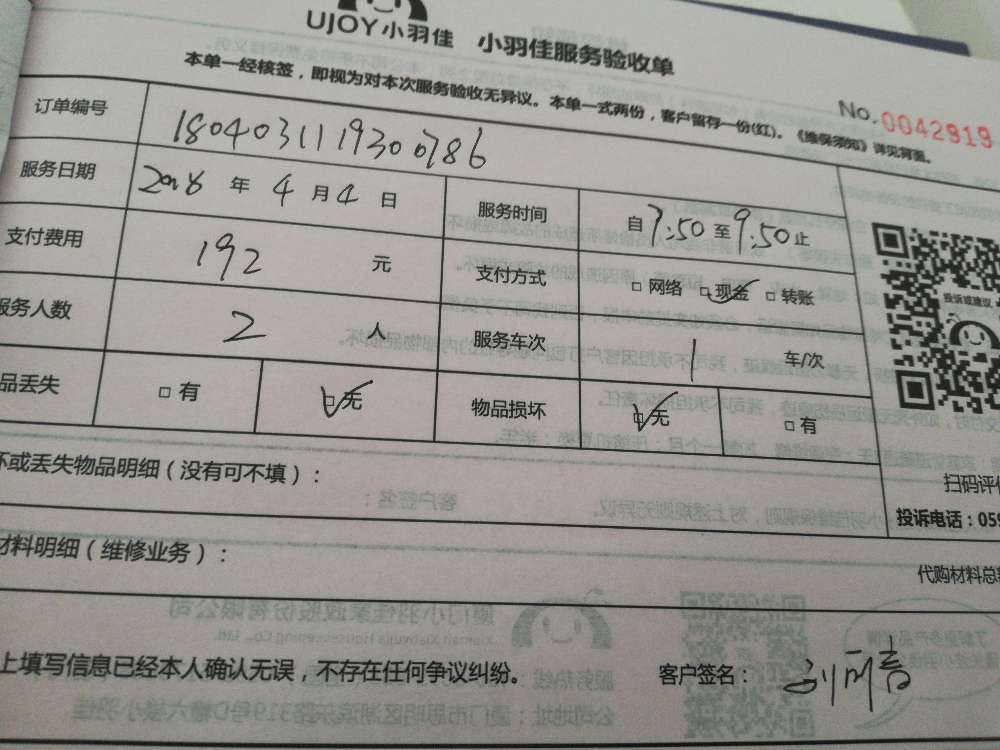 UJOY小羽佳 小羽佳服务验收单
本单一经核签，即视为对本次服务验收无异议。本单一式两份，客户留存一份(红)。《维保须知》详见背面。
No. 0042919
订单编号 180403111930 0786
服务日期 2018 年 4 月 4 日 服务时间 自7:50至9:50止
支付费用 192 元 支付方式 □ 网络 □ 现金 □ 转账
服务人数 2 人 服务车次 1 车/次
品丢失 □ 有 □ 无 物品损坏 □ 无 □ 有
投诉或建议
坏或丢失物品明细（没有可不填）：
扫码评价
投诉电话：059
材料明细（维修业务）：
代购材料总
上填写信息已经本人确认无误，不存在任何争议纠纷。 客户签名：